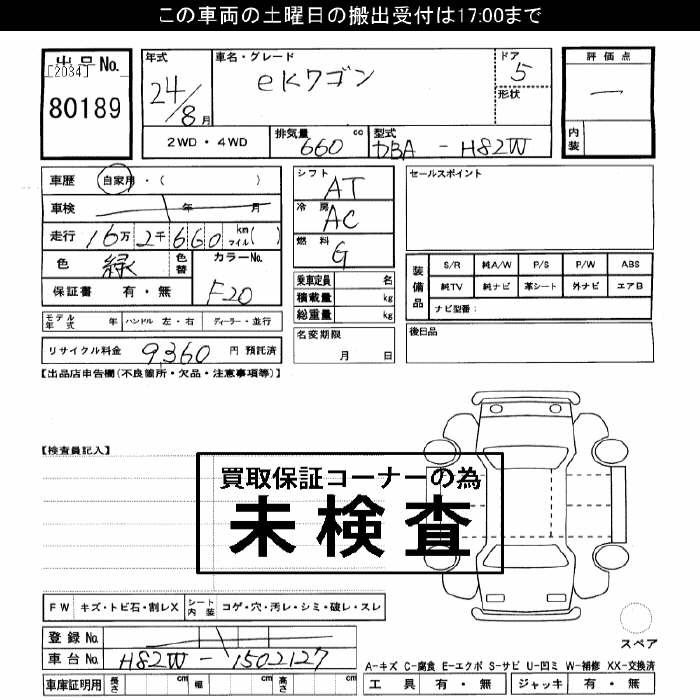 この車両の土曜日の搬出受付は17:00まで
出品No.
[2034]
80189
年式
24/8月
車名・グレード
eKワゴン
ドア
5
形状
評価点
一
内装
2WD・4WD
排気量
660 cc
型式
DBA - H82W
車歴 自家用・( )
車検 年 月
走行 16万2千660 km マイル( )
色 緑 色替
カラーNo.
F20
保証書 有・無
モデル年式 年 ハンドル 左・右 ディーラー・並行
リサイクル料金 9,360 円 預託済
シフト
AT
冷房
AC
燃料
G
乗車定員 名
積載量 kg
総重量 kg
名変期限
月 日
セールスポイント
装備品
S/R 純A/W P/S P/W ABS
純TV 純ナビ 革シート 外ナビ エアB
ナビ型番:
後日品
【出品店申告欄(不良箇所・欠品・注意事項等)】
【検査員記入】
買取保証コーナーの為
未検査
FW キズ・トビ石・割レX シート内装 コゲ・穴・汚レ・シミ・破レ・スレ
登録No.
車台No. H82W - 1502127
車庫証明用 長さ cm 幅 cm 高さ cm
スペア
A-キズ C-腐食 E-エクボ S-サビ U-凹ミ W-補修 XX-交換済
工具 有・無 ジャッキ 有・無